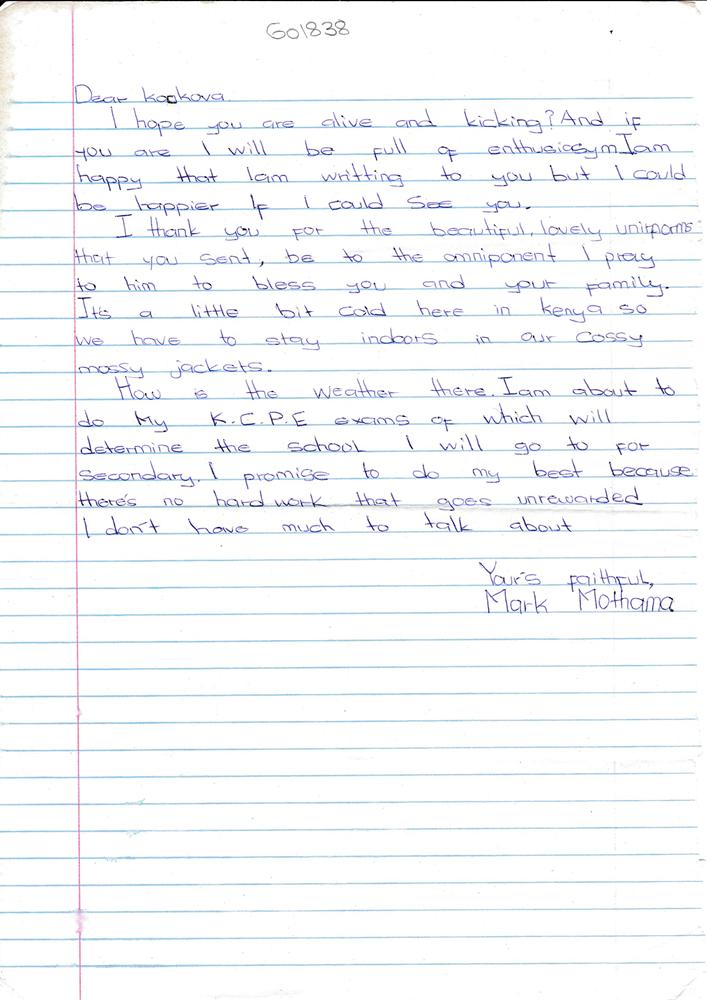 G01838
Dear kockova.
I hope you are alive and kicking? And if
you are I will be full of enthusiasym Iam
happy that Iam writting to you but I could
be happier If I could see you.
I thank you for the beautiful, lovely unirporms
that you sent, be to the omniponent I pray
to him to bless you and your family.
It's a little bit cold here in kenya so
we have to stay indoors in our cossy
mossy jackets.
How is the weather there. Iam about to
do My K.C.P.E exams of which will
determine the school I will go to for
secondary. I promise to do my best because
there's no hardwork that goes unrewarded
I don't have much to talk about
Your's faithful,
Mark Mothama